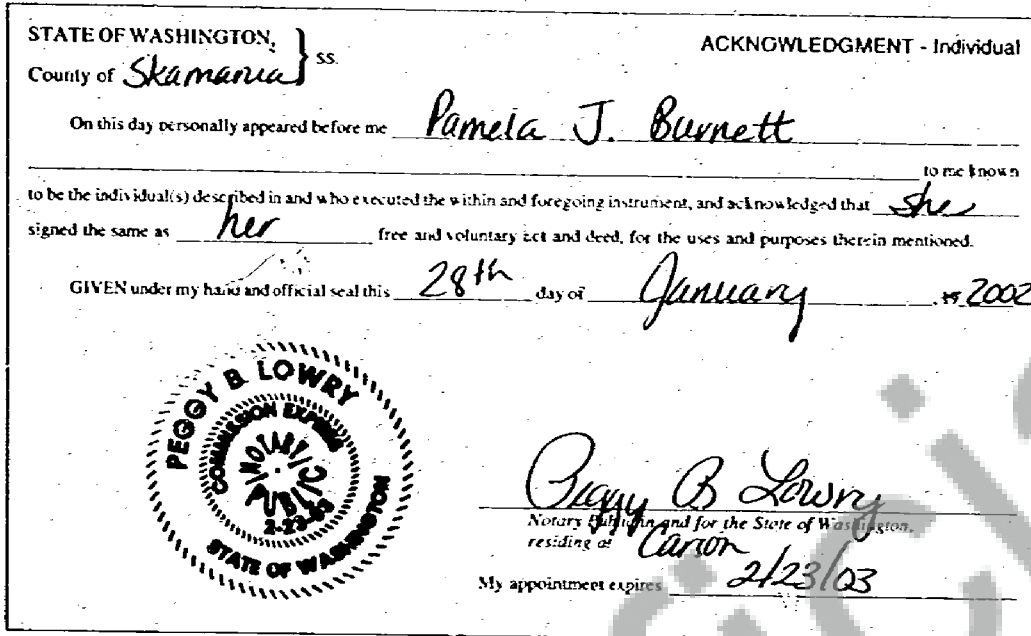 STATE OF WASHINGTON, } ss.
ACKNOWLEDGMENT - Individual
County of Skamania
On this day personally appeared before me Pamela J. Burnett
to me known
to be the individual(s) described in and who executed the within and foregoing instrument, and acknowledged that she
signed the same as her free and voluntary act and deed, for the uses and purposes therein mentioned.
GIVEN under my hand and official seal this 28th day of January, 2002
PEGGY B. LOWRY
COMMISSION EXPIRES
NOTARY PUBLIC
2-23-03
STATE OF WASHINGTON
Peggy B Lowry
Notary Public in and for the State of Washington,
residing at Carson
My appointment expires 2/23/03